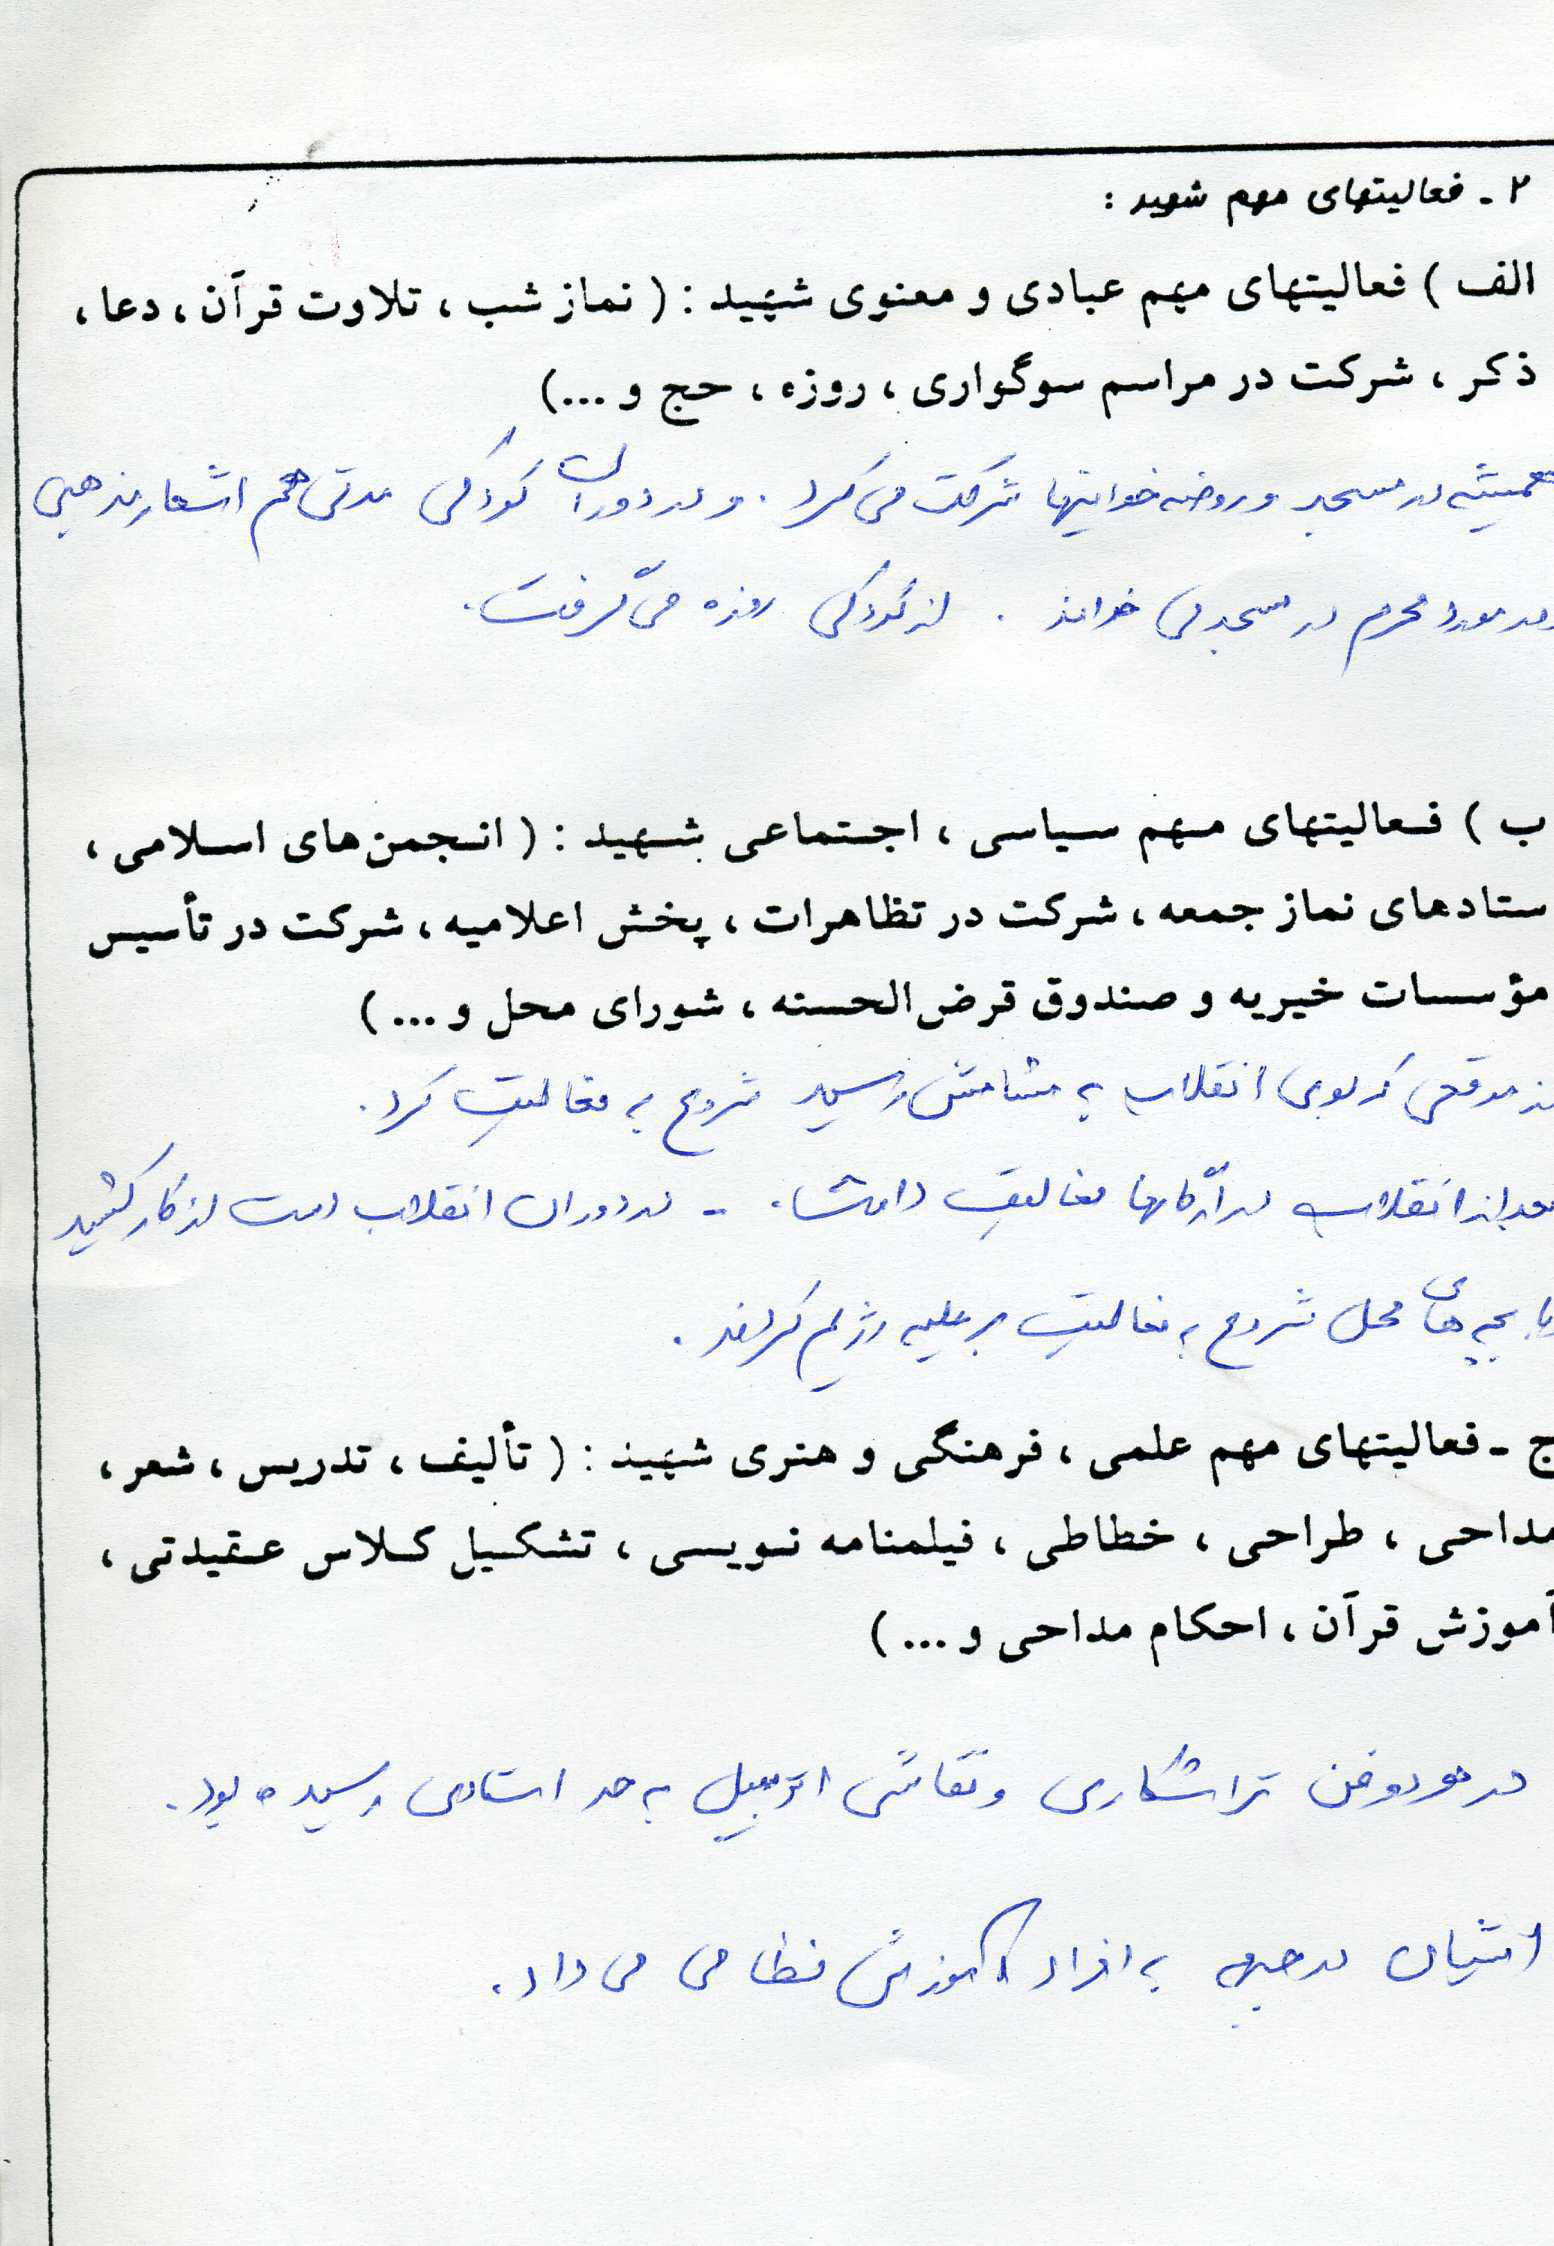 ۲ - فعالیتهای مهم شهید :
الف ) فعالیتهای مهم عبادی و معنوی شهید : ( نماز شب ، تلاوت قرآن ، دعا ،
ذکر ، شرکت در مراسم سوگواری ، روزه ، حج و ...)
همیشه در مسجد و روضه خوانیها شرکت می کرد . و در دوران کودکی مدتی هم اشعار مذهبی
در مورد محرم در مسجد می خواند . از کودکی روزه می گرفت .
ب ) فعالیتهای مهم سیاسی ، اجتماعی شهید : ( انجمن های اسلامی ،
ستادهای نماز جمعه ، شرکت در تظاهرات ، پخش اعلامیه ، شرکت در تأسیس
مؤسسات خیریه و صندوق قرض الحسنه ، شورای محل و ... )
از موقعی که بوی انقلاب به مشامش رسید شروع به فعالیت کرد .
بعد از انقلاب در ارگانها فعالیت داشت . - در دوران انقلاب دست از کار کشید
با بچه های محل شروع به فعالیت بر علیه رژیم کردند .
ج - فعالیتهای مهم علمی ، فرهنگی و هنری شهید : ( تألیف ، تدریس ، شعر ،
مداحی ، طراحی ، خطاطی ، فیلمنامه نویسی ، تشکیل کلاس عقیدتی ،
آموزش قرآن ، احکام مداحی و ... )
در هر دو فن تراشکاری و نقاشی اتومبیل به حد استادی رسیده بود .
ایشان در جبهه به افراد آموزش نظامی می داد .